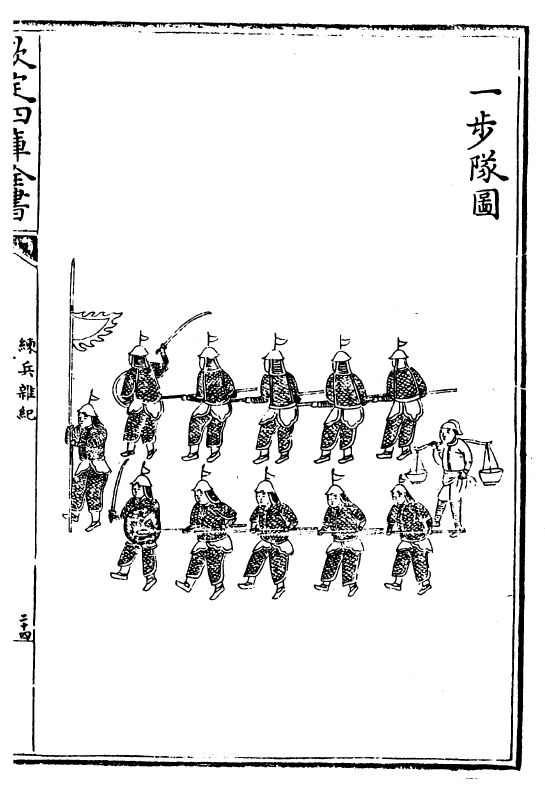 一步隊圖
欽定四庫全書
練兵雜紀
二十四